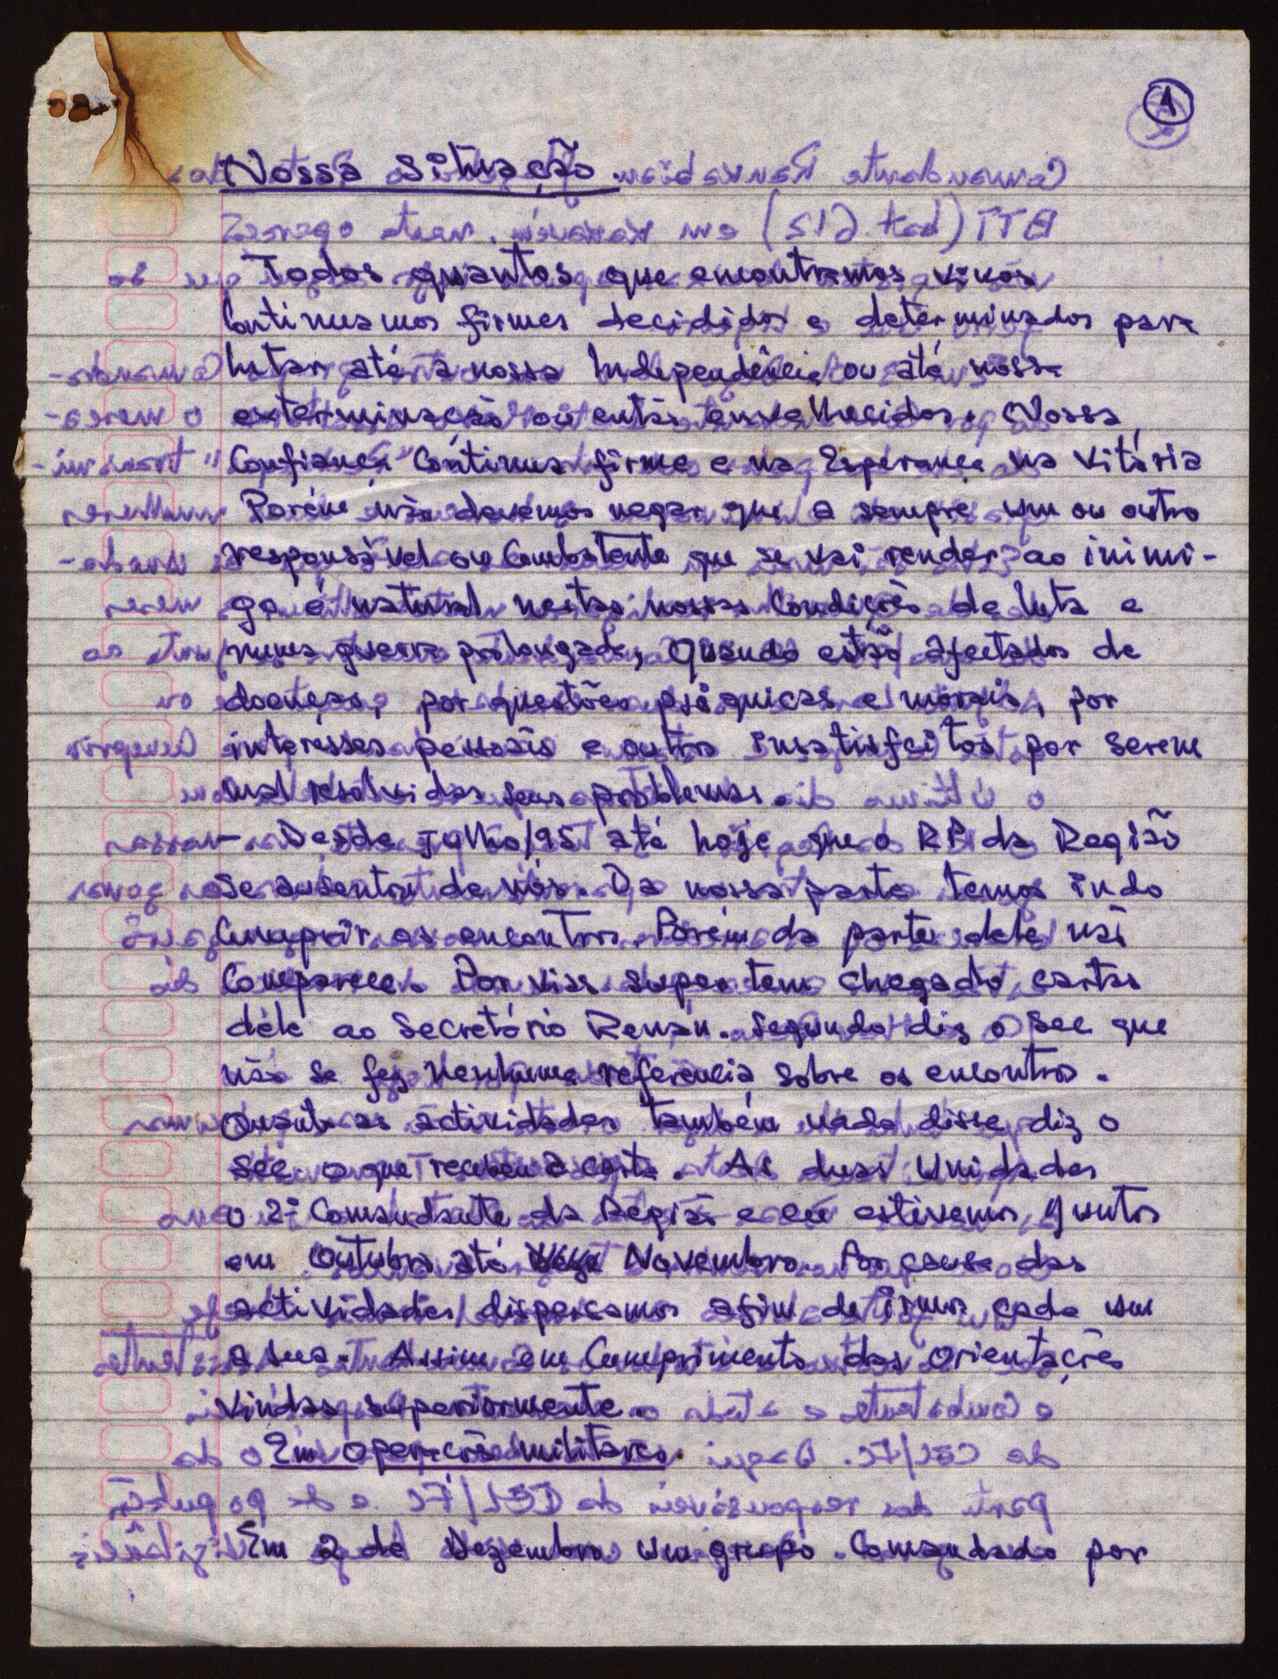 1
Nossa Situação.
Todos quantos que encontramos vivos
Continuamos firmes decididos e determinados para
lutar até a nossa Independência ou até nossa
exterminação ou então envelhecidos. Nossa
Confiança Continua firme e na Esperança na Vitória
Porém não devemos negar que a sempre um ou outro
responsável ou Combatente que se vai render ao inimi-
go é natural nestas nossas Condições de luta e
numa guerra prolongada, quando estão afectados de
doenças, por questões psiquicas e morais, por
interesses pessoais e outro insatisfeitos por serem
mal resolvidos seus problemas.
- Desde Julho/95 até hoje que o RP da Região
se ausentou de nós. Da nossa parte temos indo
Cumprir os encontros. Porém da parte dele não
Comparece. Por vias super tem chegado cartas
dele ao Secretário Renán. Segundo diz o Sec que
não se fez nenhuma referência sobre os encontros.
Quanto as actividades também nada disse diz o
Sec o que recebeu a carta. As duas Unidades
o 2º Comandante da Região e eu estivemos juntos
em Outubro até Novembro. Por causa das
actividades dispersamos afim de irmos cada um
a sua. Assim em Cumprimento das Orientações
vindas superiormente.
Em operações militares.
Em 2 de Dezembro um grupo Comandado por